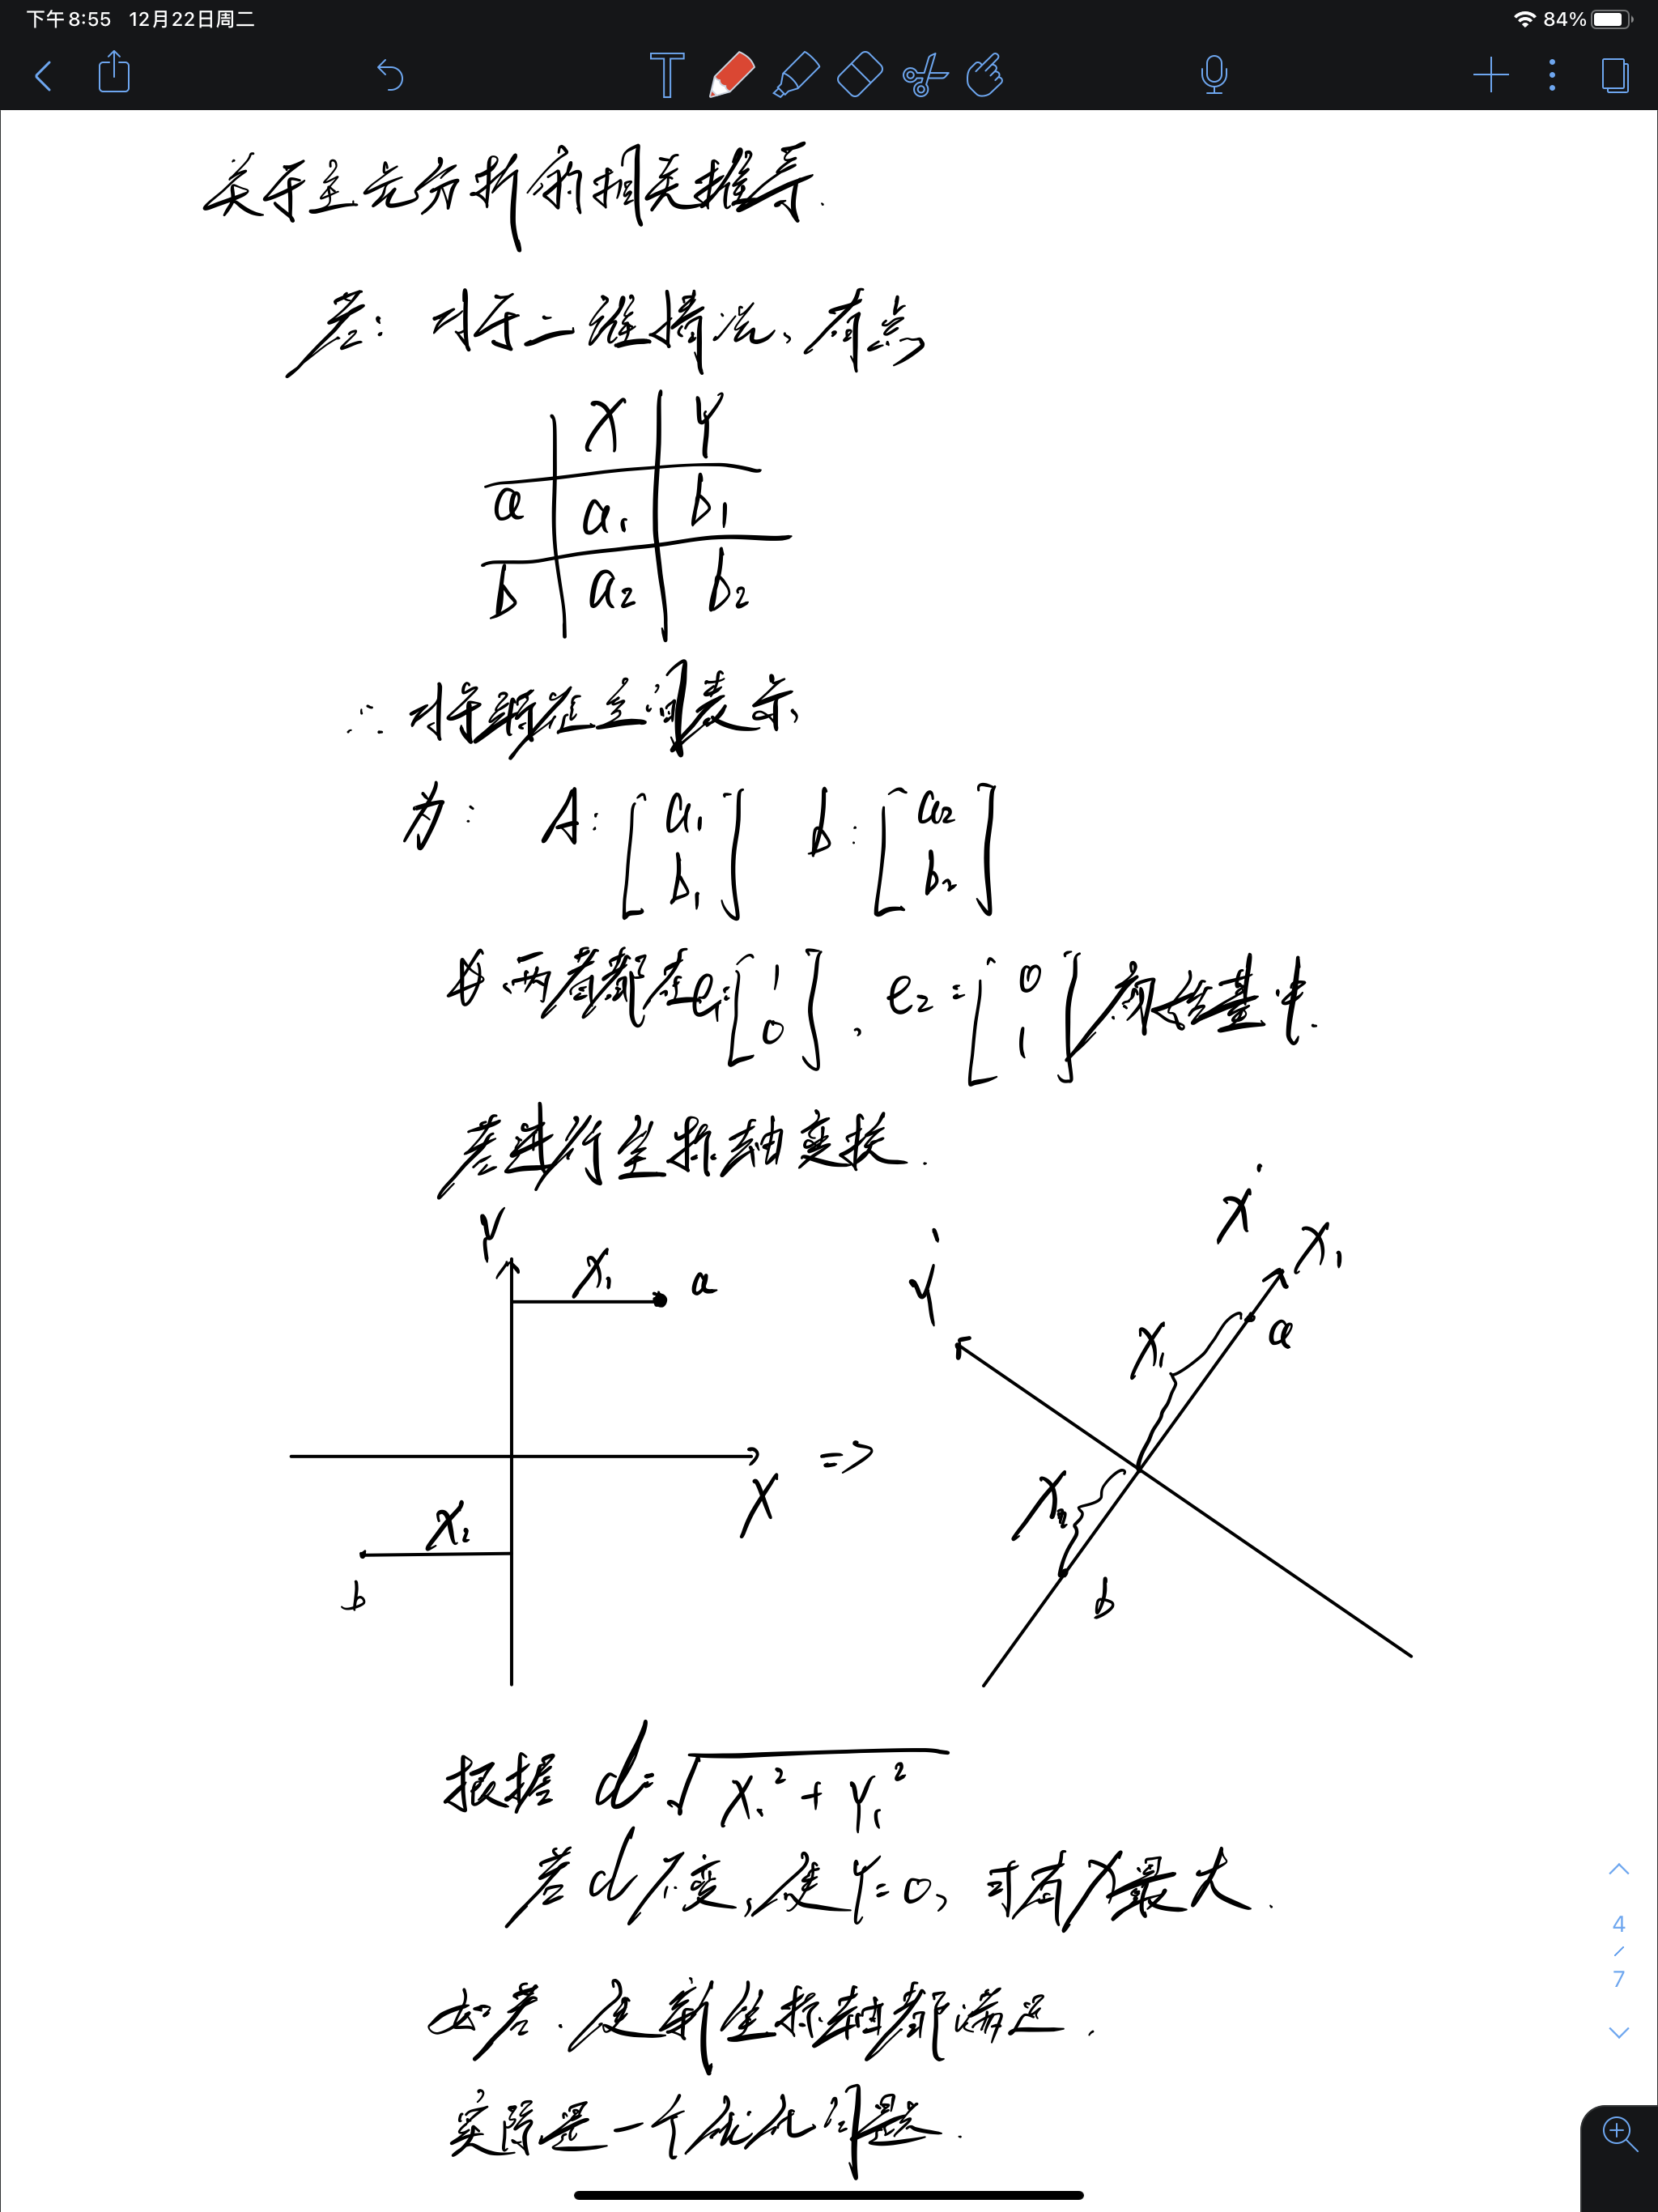 下午8:55 12月22日周二
84%
关于主元分析的相关推导.
若: 对于二维情况、有点
X Y
a a₁ b₁
b a₂ b₂
∴ 对于新在空间表示
为: A: [a₁ b₁] b: [a₂ b₂]
且两者都在e₁=[1 0], e₂=[0 1]初始基中.
若进行坐标轴变换.
Y
X₁ a
X
X₂
b
=>
Y'
X'
X₁
X₁ a
X₂
b
根据 d=√X₁²+Y₁²
若d不变,使Y=0,可有X最大.
如若.使新坐标轴都满足.
实际是一个优化问题.
4
/
7